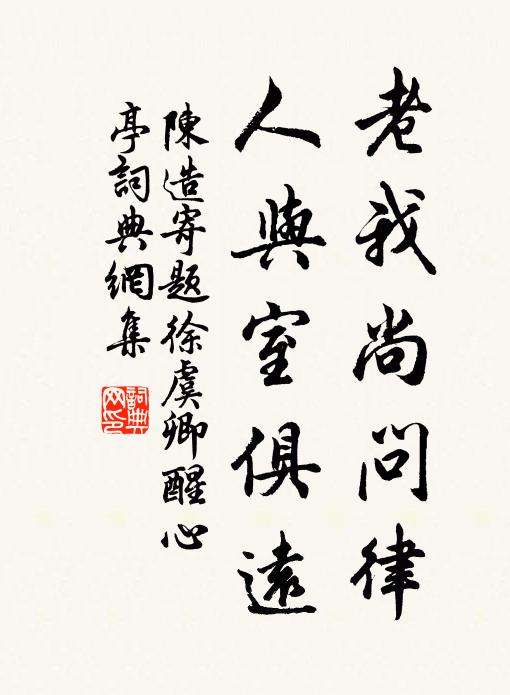 老我尚問律
人與室俱遠
陳造寄題徐虞卿醒心
亭詞典網集
詞典网印